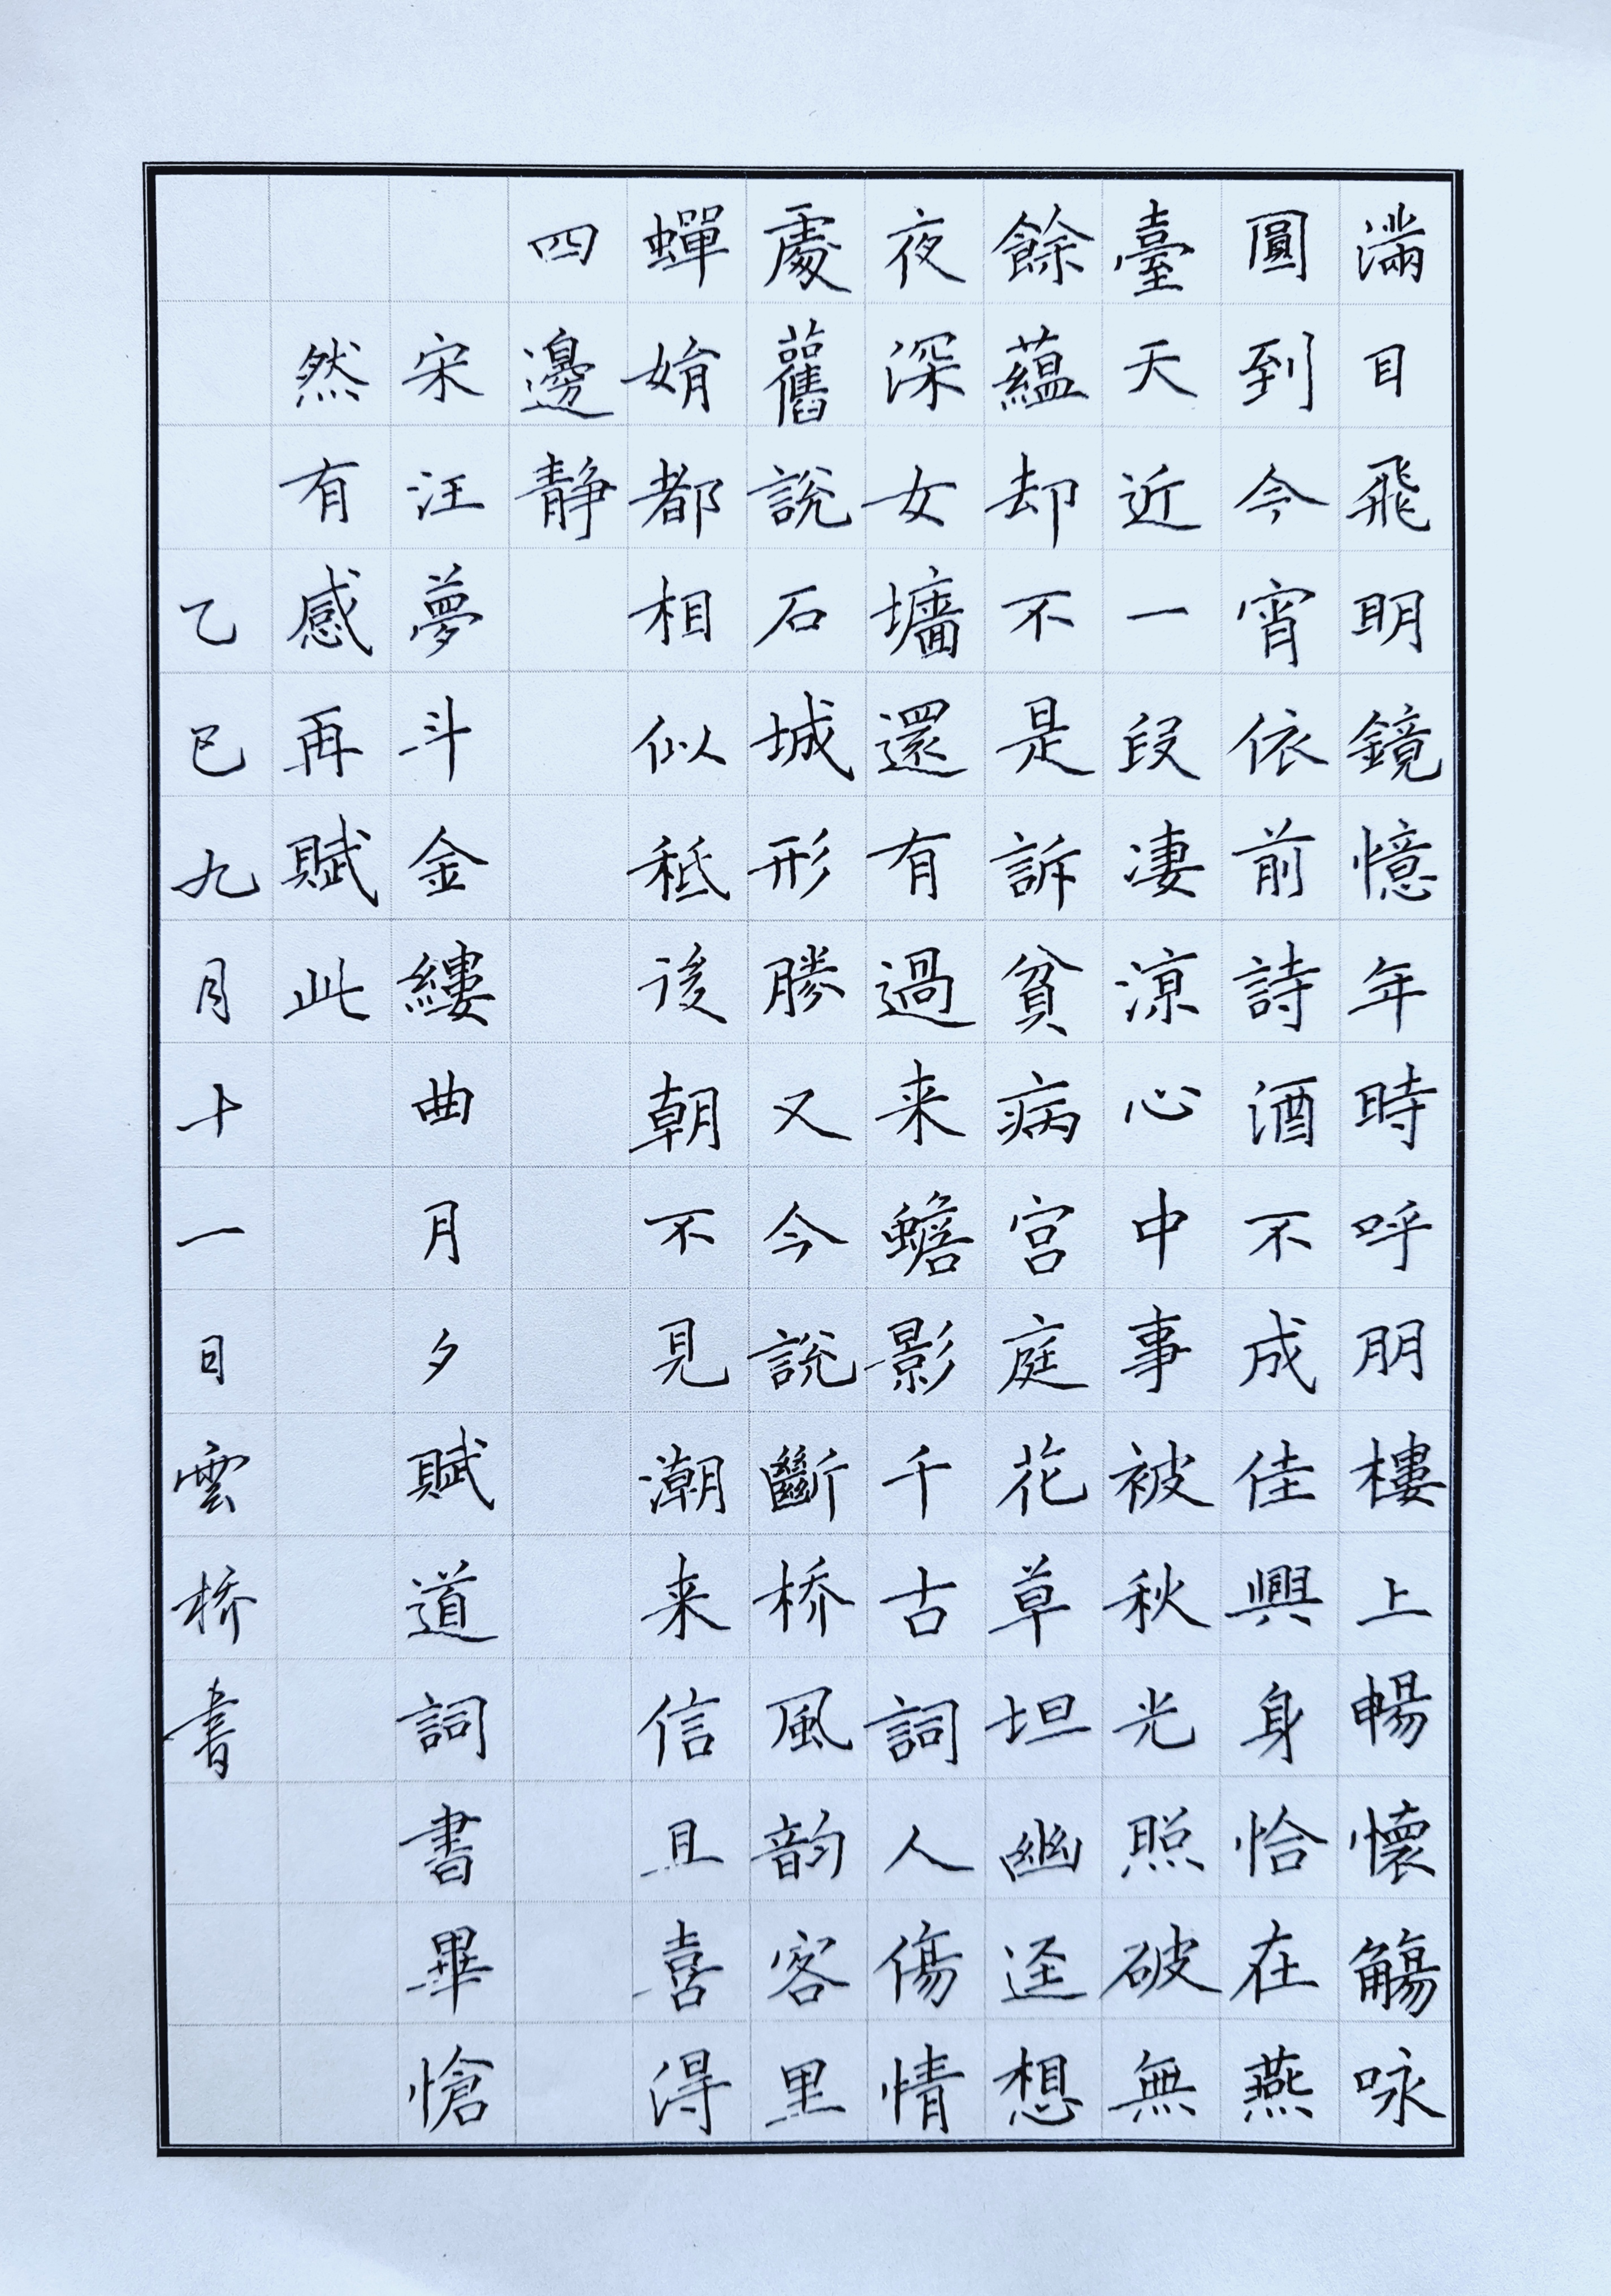 滿目飛明鏡憶年時呼朋樓上暢懷觴咏
圓到今宵依前詩酒不成佳興身恰在燕
臺天近一段淒涼心中事被秋光照破無
餘蘊却不是訴貧病宮庭花草坦幽迳想
夜深女墻還有過来蟾影千古詞人傷情
處舊說石城形勝又今說斷桥風韵客里
蟬娟都相似秪後朝不見潮来信且喜得
四邊静
宋汪夢斗金縷曲月夕賦道詞書畢愴
然有感再賦此
乙巳九月十一日雲桥書